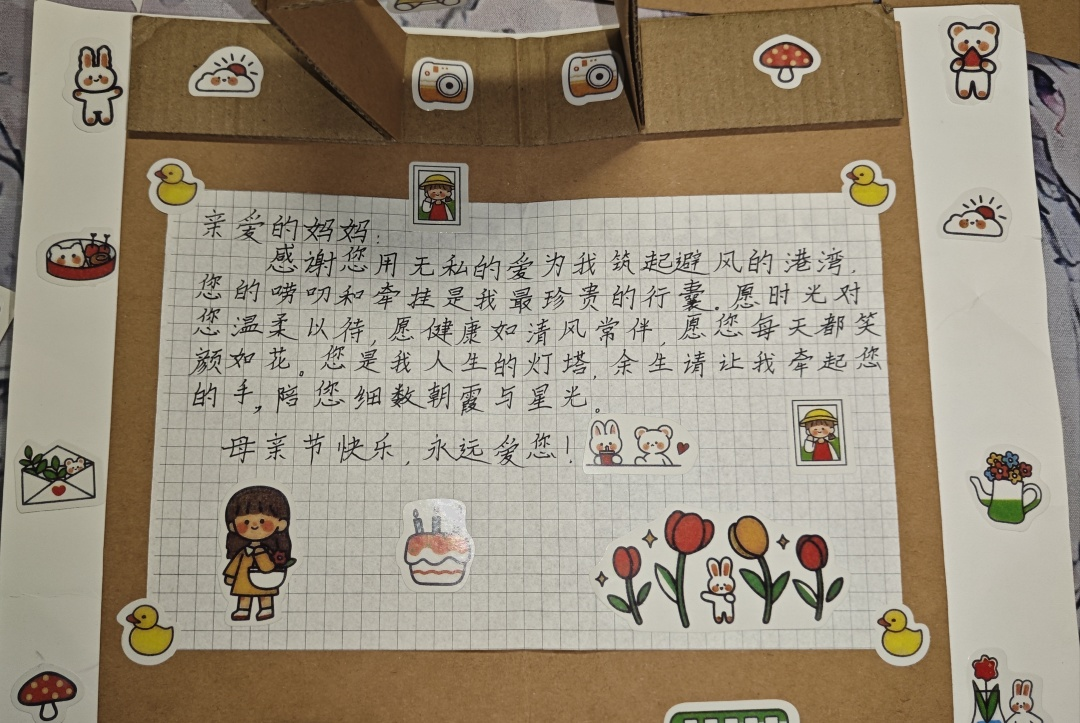 亲爱的妈妈:
感谢您用无私的爱为我筑起避风的港湾,
您的唠叨和牵挂是我最珍贵的行囊.愿时光对
您温柔以待,愿健康如清风常伴,愿您每天都笑
颜如花。您是我人生的灯塔,余生请让我牵起您
的手,陪您细数朝霞与星光。
母亲节快乐,永远爱您!